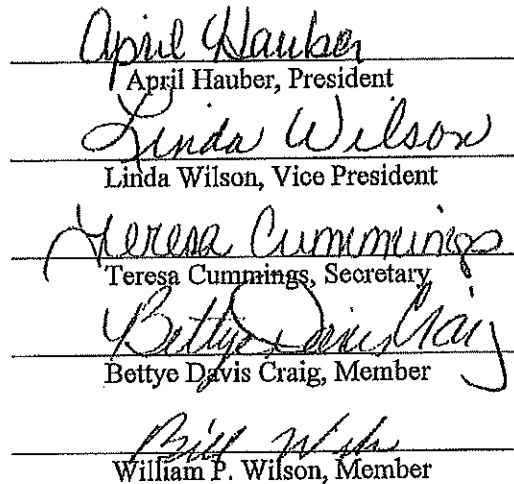 April Hauber
April Hauber, President
Linda Wilson
Linda Wilson, Vice President
Teresa Cummings
Teresa Cummings, Secretary
Bettye Davis Craig
Bettye Davis Craig, Member
Bill
William P. Wilson, Member